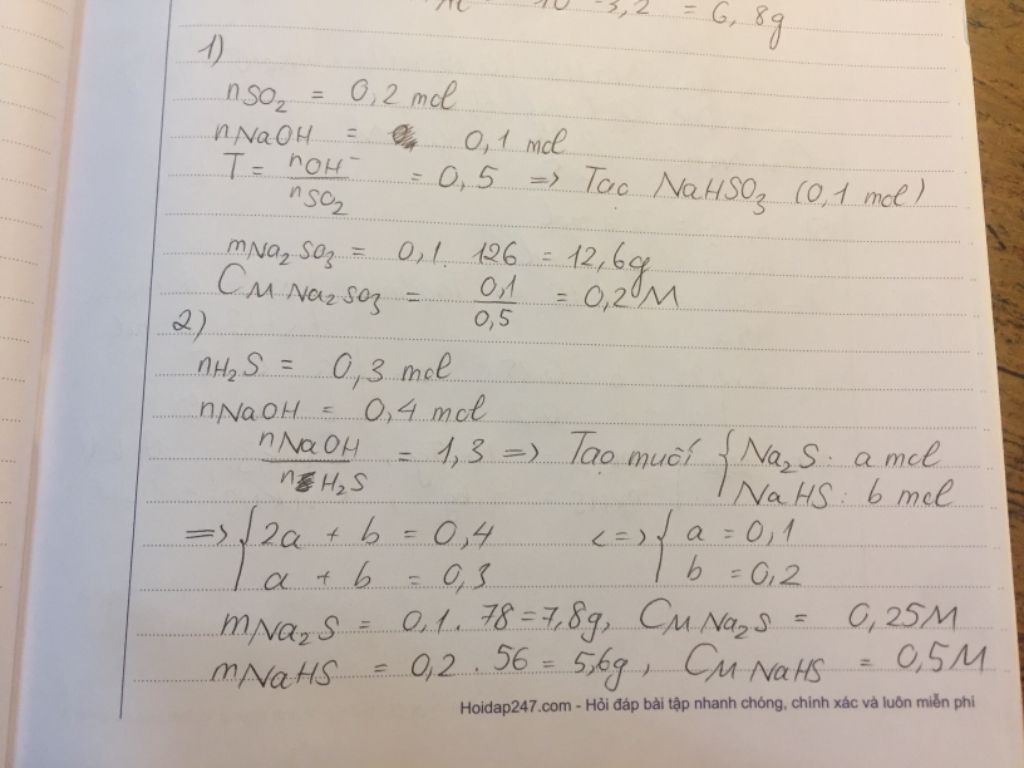 10 - 3,2 = 6,8g
1)
nSO₂ = 0,2 mol
nNaOH = 0,1 mol
T = nOH⁻ / nSO₂ = 0,5 => Tạo NaHSO₃ (0,1 mol)
mNa₂SO₃ = 0,1. 126 = 12,6g
CM Na₂SO₃ = 0,1 / 0,5 = 0,2M
2)
nH₂S = 0,3 mol
nNaOH = 0,4 mol
nNaOH / nH₂S = 1,3 => Tạo muối { Na₂S: a mol
NaHS: b mol
=> { 2a + b = 0,4 <=> { a = 0,1
a + b = 0,3 b = 0,2
mNa₂S = 0,1. 78 = 7,8g, CM Na₂S = 0,25M
mNaHS = 0,2 . 56 = 5,6g, CM NaHS = 0,5M
Hoidap247.com - Hỏi đáp bài tập nhanh chóng, chính xác và luôn miễn phí